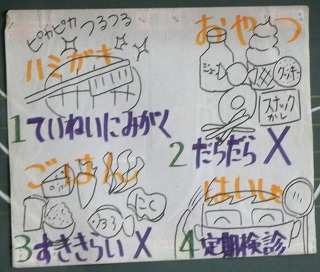 ピカピカ つるつる
ハミガキ
1 ていねいにみがく
おやつ
ジュース
クッキー
スナック
がし
2 だらだら X
ごはん
3 すききらい X
はいしゃ
4 定期検診